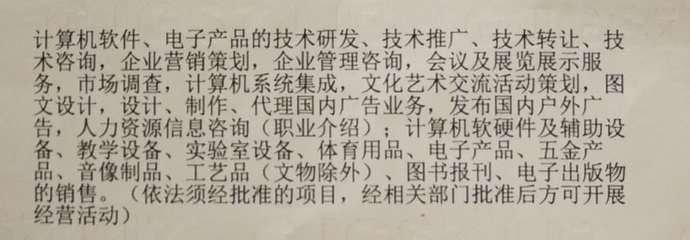 计算机软件、电子产品的技术研发、技术推广、技术转让、技
术咨询，企业营销策划，企业管理咨询，会议及展览展示服
务，市场调查，计算机系统集成，文化艺术交流活动策划，图
文设计，设计、制作、代理国内广告业务，发布国内户外广
告，人力资源信息咨询（职业介绍）；计算机软硬件及辅助设
备、教学设备、实验室设备、体育用品、电子产品、五金产
品、音像制品、工艺品（文物除外）、图书报刊、电子出版物
的销售。（依法须经批准的项目，经相关部门批准后方可开展
经营活动）